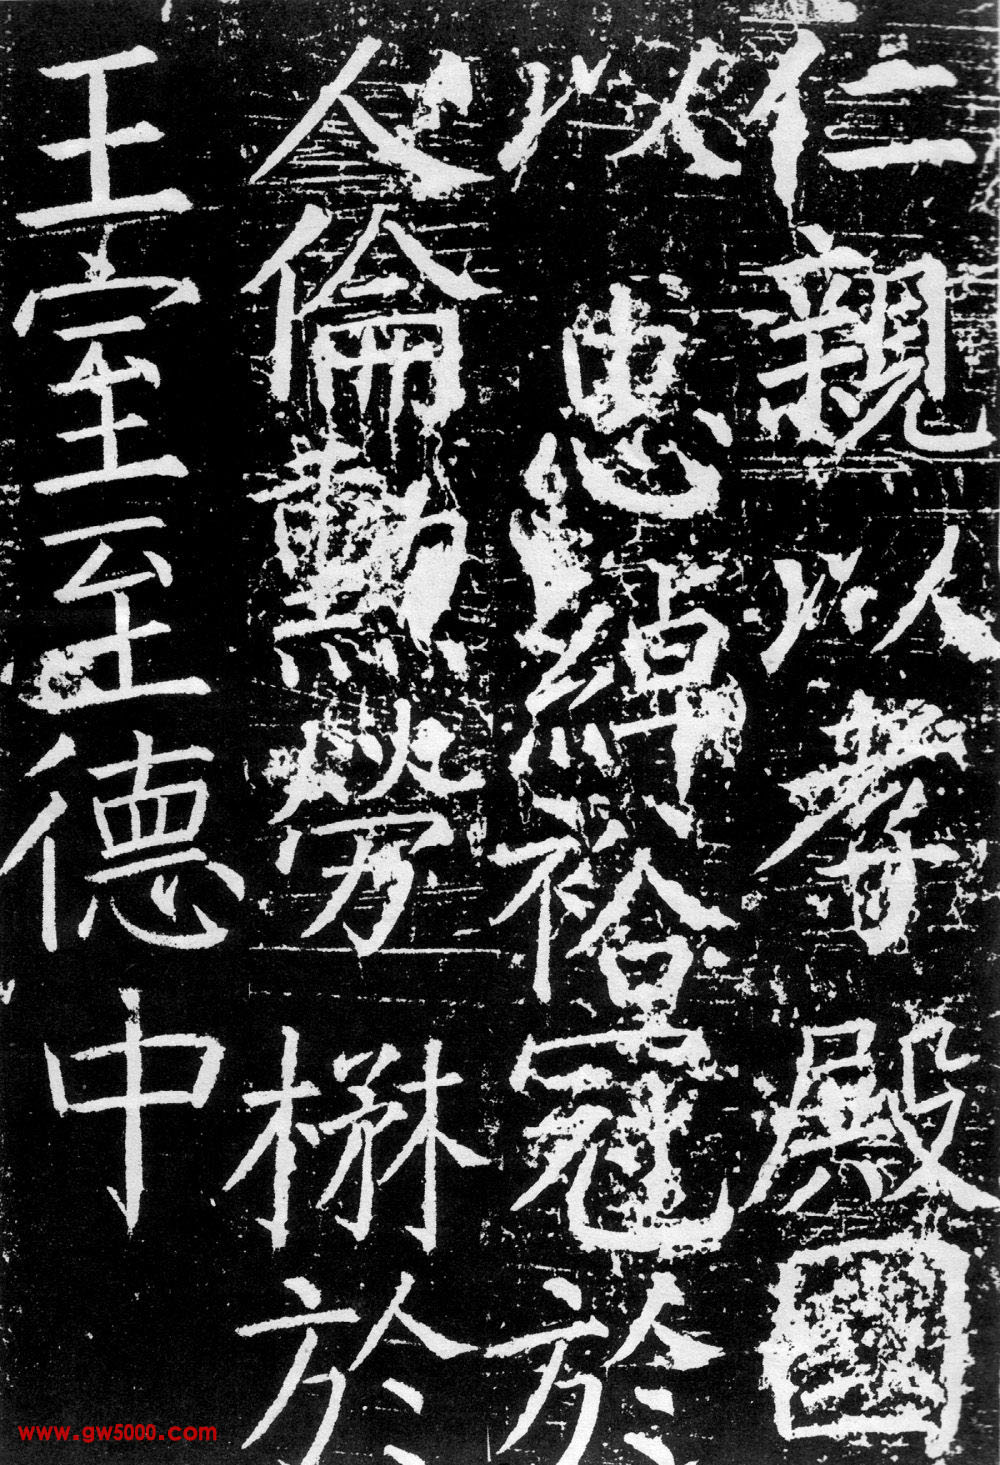 仁親以孝殿國
以忠綽裕冠於
人倫勲勞楙於
王室至德中
www.gw5000.com